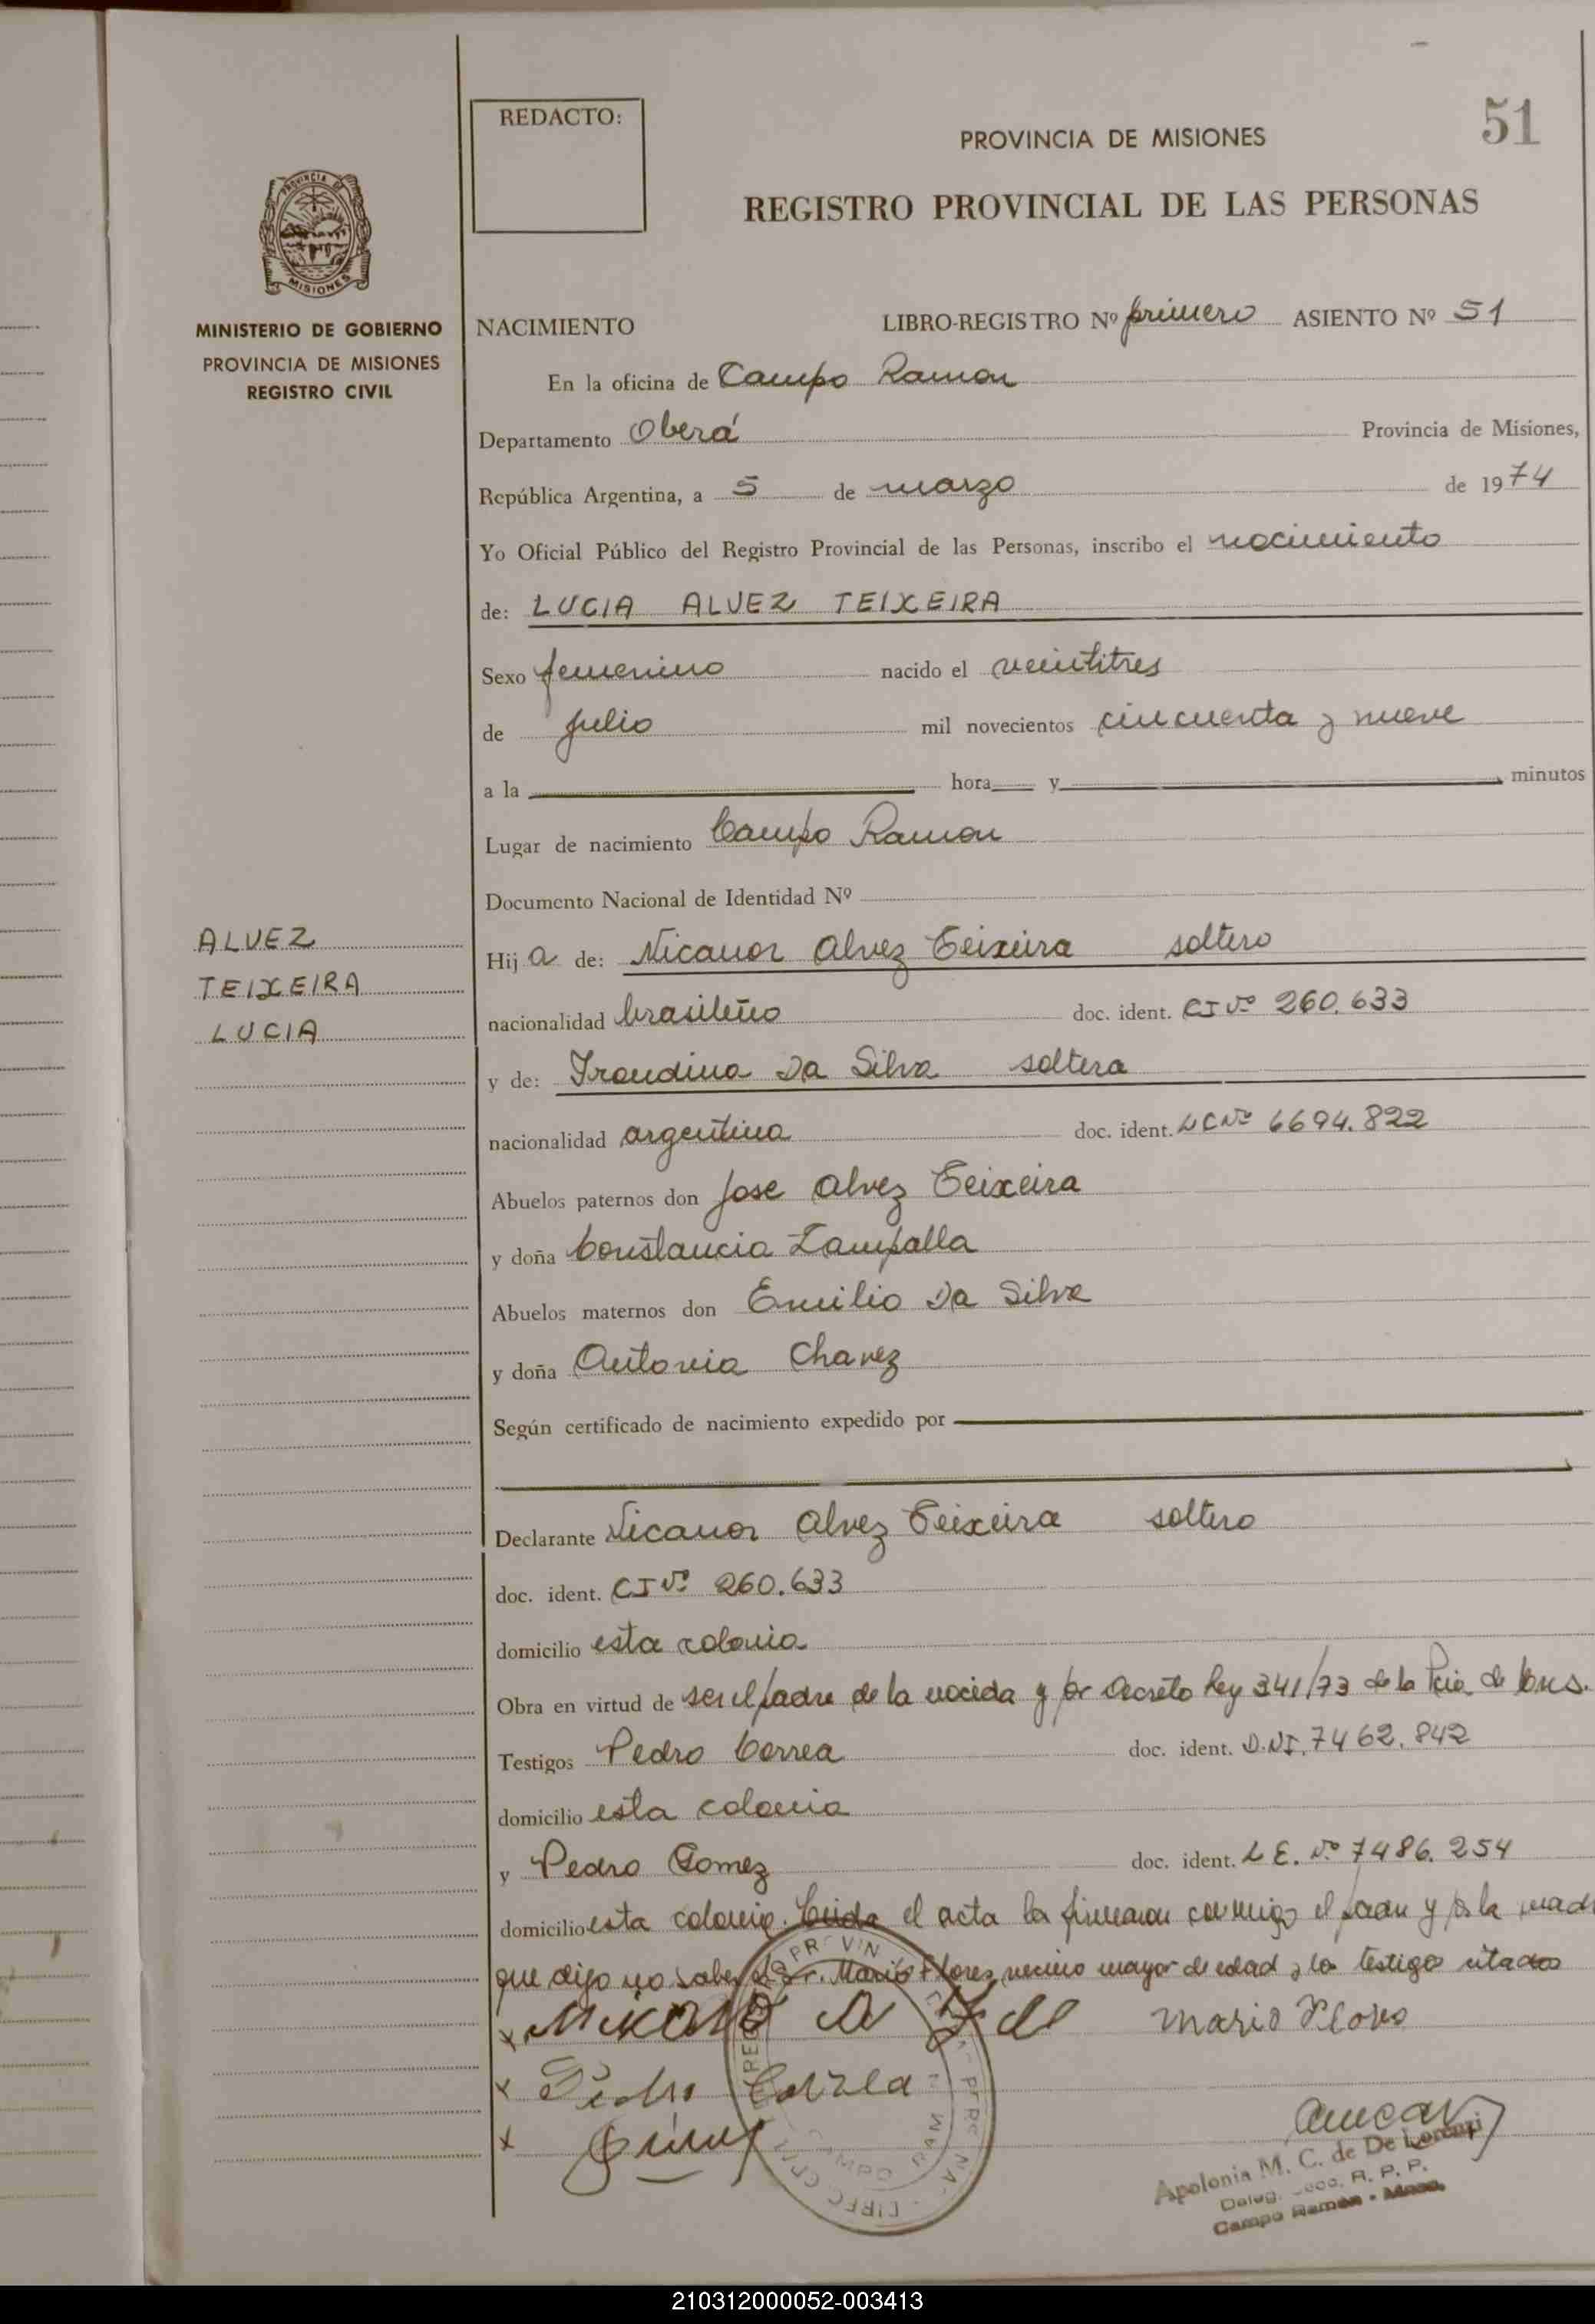 51
REDACTO:
PROVINCIA DE MISIONES
REGISTRO PROVINCIAL DE LAS PERSONAS
PROVINCIA DE
MISIONES
MINISTERIO DE GOBIERNO
PROVINCIA DE MISIONES
REGISTRO CIVIL
NACIMIENTO LIBRO-REGISTRO Nº primero ASIENTO Nº 51
En la oficina de Campo Ramon
Departamento Oberá Provincia de Misiones,
República Argentina, a 5 de marzo de 1974
Yo Oficial Público del Registro Provincial de las Personas, inscribo el nacimiento
de: LUCIA ALVEZ TEIXEIRA
Sexo femenino nacido el veintitres
de julio mil novecientos cincuenta y nueve
a la hora y minutos
Lugar de nacimiento Campo Ramon
Documento Nacional de Identidad Nº
ALVEZ
TEIXEIRA
LUCIA
Hij a de: Nicanor Alvez Teixeira soltero
nacionalidad brasileño doc. ident. CI Nº 260.633
y de: Irondina Da Silva soltera
nacionalidad argentina doc. ident. LC Nº 6694.822
Abuelos paternos don Jose Alvez Teixeira
y doña Constancia Lampalla
Abuelos maternos don Emilio Da Silva
y doña Antonia Chavez
Según certificado de nacimiento expedido por
Declarante Nicanor Alvez Teixeira soltero
doc. ident. CI Nº 260.633
domicilio esta colonia
Obra en virtud de ser el padre de la nacida y por Decreto Ley 341/73 de la Pcia de
Testigos Pedro Correa doc. ident. D.NI. 7462.842
domicilio esta colonia
y Pedro Gomez doc. ident. L E. Nº 7486.254
domicilio esta colonia. Leida el acta la firmaron conmigo el padre y por la mad
que dijo no saber el Sr. Mario Flores, vecino mayor de edad y los testigos citados
x Mario Flores
x Pedro Correa
x
Apolonia M. C. de De Lorenzi
Deleg. R. P. P.
Campo Ramón - Mnes.
210312000052-003413